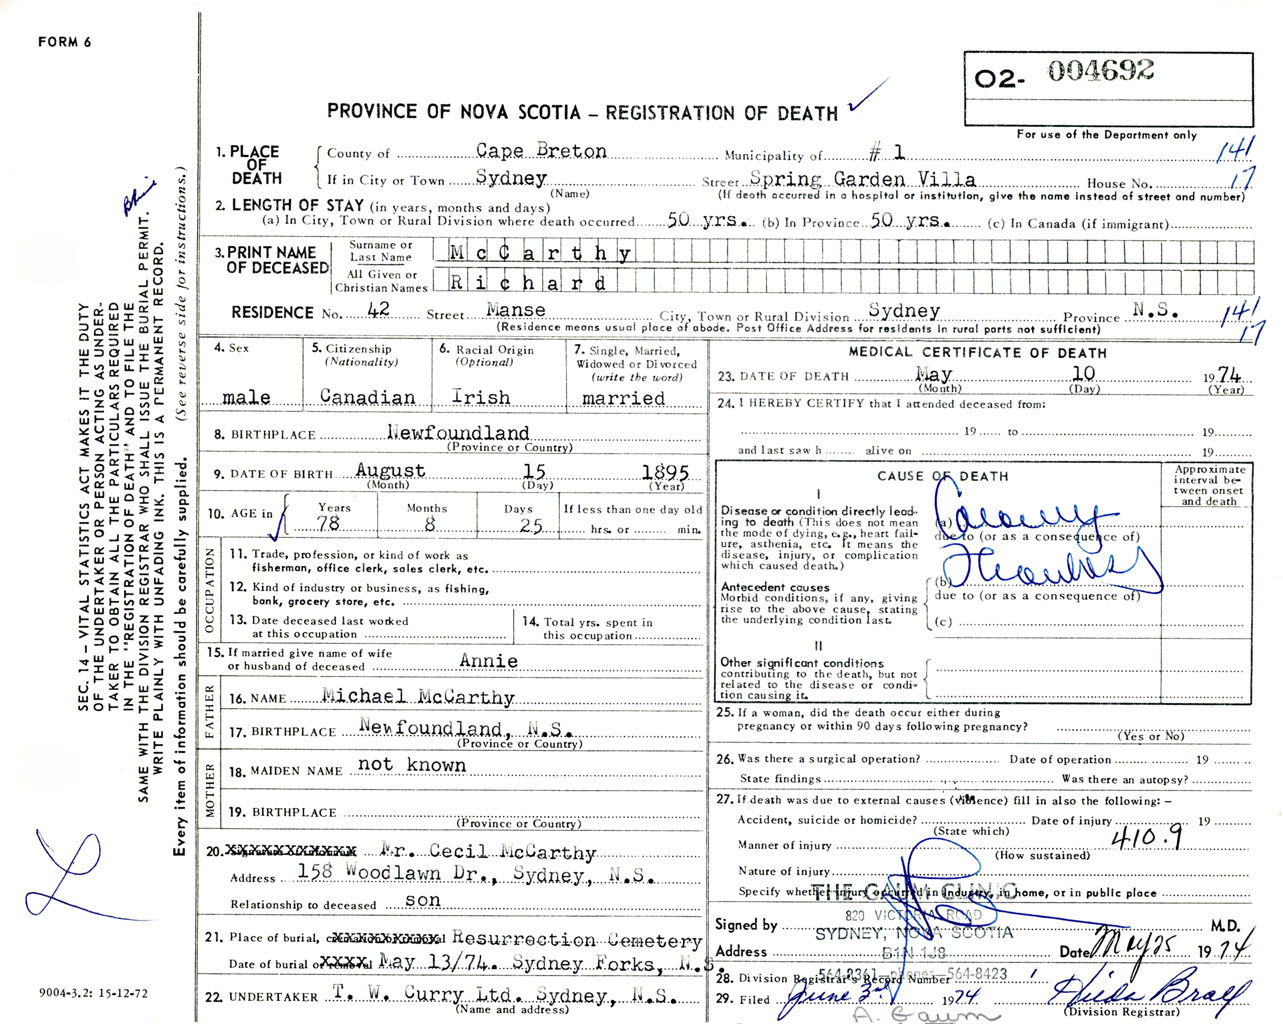 FORM 6
O2- 004692
For use of the Department only
PROVINCE OF NOVA SCOTIA – REGISTRATION OF DEATH ✓
1. PLACE OF DEATH
County of Cape Breton Municipality of # 1 141
If in City or Town Sydney (Name) Street Spring Garden Villa House No. 17
(If death occurred in a hospital or institution, give the name instead of street and number)
2. LENGTH OF STAY (in years, months and days)
(a) In City, Town or Rural Division where death occurred 50 yrs. (b) In Province 50 yrs. (c) In Canada (if immigrant)
3. PRINT NAME OF DECEASED
Surname or Last Name McCarthy
All Given or Christian Names Richard
RESIDENCE No. 42 Street Manse City, Town or Rural Division Sydney Province N.S. 141 17
(Residence means usual place of abode. Post Office Address for residents in rural parts not sufficient)
4. Sex male
5. Citizenship (Nationality) Canadian
6. Racial Origin (Optional) Irish
7. Single, Married, Widowed or Divorced (write the word) married
8. BIRTHPLACE Newfoundland
(Province or Country)
9. DATE OF BIRTH August 15 1895
(Month) (Day) (Year)
10. AGE in Years 78 Months 8 Days 25 If less than one day old hrs. or min.
OCCUPATION
11. Trade, profession, or kind of work as fisherman, office clerk, sales clerk, etc.
12. Kind of industry or business, as fishing, bank, grocery store, etc.
13. Date deceased last worked at this occupation
14. Total yrs. spent in this occupation
15. If married give name of wife or husband of deceased Annie
FATHER
16. NAME Michael McCarthy
17. BIRTHPLACE Newfoundland, N.S.
(Province or Country)
MOTHER
18. MAIDEN NAME not known
19. BIRTHPLACE
(Province or Country)
20. XXXXXXXXXXXX Mr. Cecil McCarthy
Address 158 Woodlawn Dr., Sydney, N.S.
Relationship to deceased son
21. Place of burial, Resurrection Cemetery
Date of burial or May 13/74. Sydney Forks, N.S.
22. UNDERTAKER T. W. Curry Ltd. Sydney, N.S.
(Name and address)
MEDICAL CERTIFICATE OF DEATH
23. DATE OF DEATH May 10 1974
(Month) (Day) (Year)
24. I HEREBY CERTIFY that I attended deceased from:
19 to 19
and last saw h alive on 19
CAUSE OF DEATH
Approximate interval between onset and death
I
Disease or condition directly leading to death (This does not mean the mode of dying, e.g., heart failure, asthenia, etc. It means the disease, injury, or complication which caused death.)
(a) Coronary
due to (or as a consequence of)
Antecedent causes
Morbid conditions, if any, giving rise to the above cause, stating the underlying condition last.
(b) Thrombosis
due to (or as a consequence of)
(c)
II
Other significant conditions contributing to the death, but not related to the disease or condition causing it.
25. If a woman, did the death occur either during pregnancy or within 90 days following pregnancy?
(Yes or No)
26. Was there a surgical operation? Date of operation 19
State findings Was there an autopsy?
27. If death was due to external causes (violence) fill in also the following: –
Accident, suicide or homicide? Date of injury 19
(State which)
410.9
Manner of injury
(How sustained)
Nature of injury
Specify whether injury occurred in industry, in home, or in public place
THE GAUM CLINIC
820 VICTORIA ROAD
SYDNEY, NOVA SCOTIA
B1N 1J8
564-8361—phones—564-8423
Signed by M.D.
Address Date May 25 1974
28. Division Registrar's Record Number
29. Filed June 3rd 1974 Hilda Brace
(Division Registrar)
A. Gaum
SEC. 14 – VITAL STATISTICS ACT MAKES IT THE DUTY
OF THE UNDERTAKER OR PERSON ACTING AS UNDER-
TAKER TO OBTAIN ALL THE PARTICULARS REQUIRED
IN THE "REGISTRATION OF DEATH" AND TO FILE THE
SAME WITH THE DIVISION REGISTRAR WHO SHALL ISSUE THE BURIAL PERMIT.
WRITE PLAINLY WITH UNFADING INK. THIS IS A PERMANENT RECORD.
Every item of information should be carefully supplied. (See reverse side for instructions.)
9004-3.2: 15-12-72